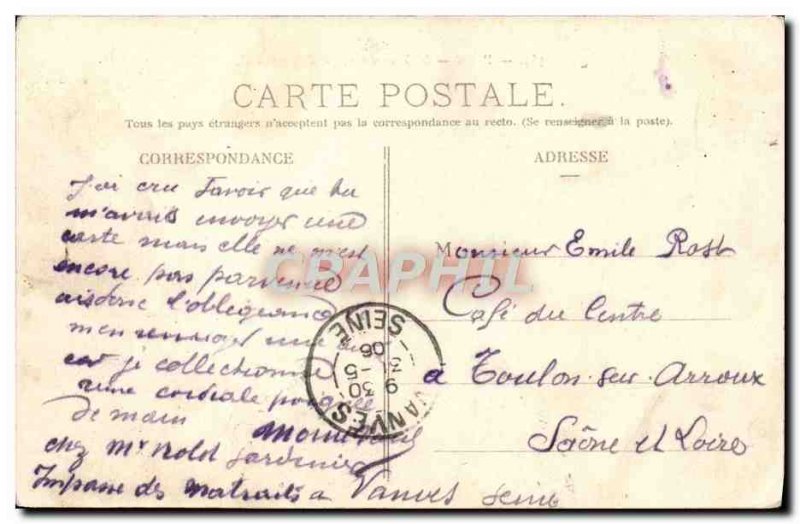 CARTE POSTALE.
Tous les pays étrangers n'acceptent pas la correspondance au recto. (Se renseigner à la poste).
CORRESPONDANCE
J'ai cru savoir que tu
m'avais envoyer une
carte mais elle ne m'est
encore pas parvenue
l'oblegeance
m'en renvoyer une
car je collectionne
une cordiale poignée
de main
chez Mr jardinier
Impasse des a Vanves Seine
ADRESSE
Monsieur Emile Rost
Café du Centre
à Toulon sur Arroux
Saône et Loire
VANVES
9 30
31 -5
06
SEINE
CPAPHIL